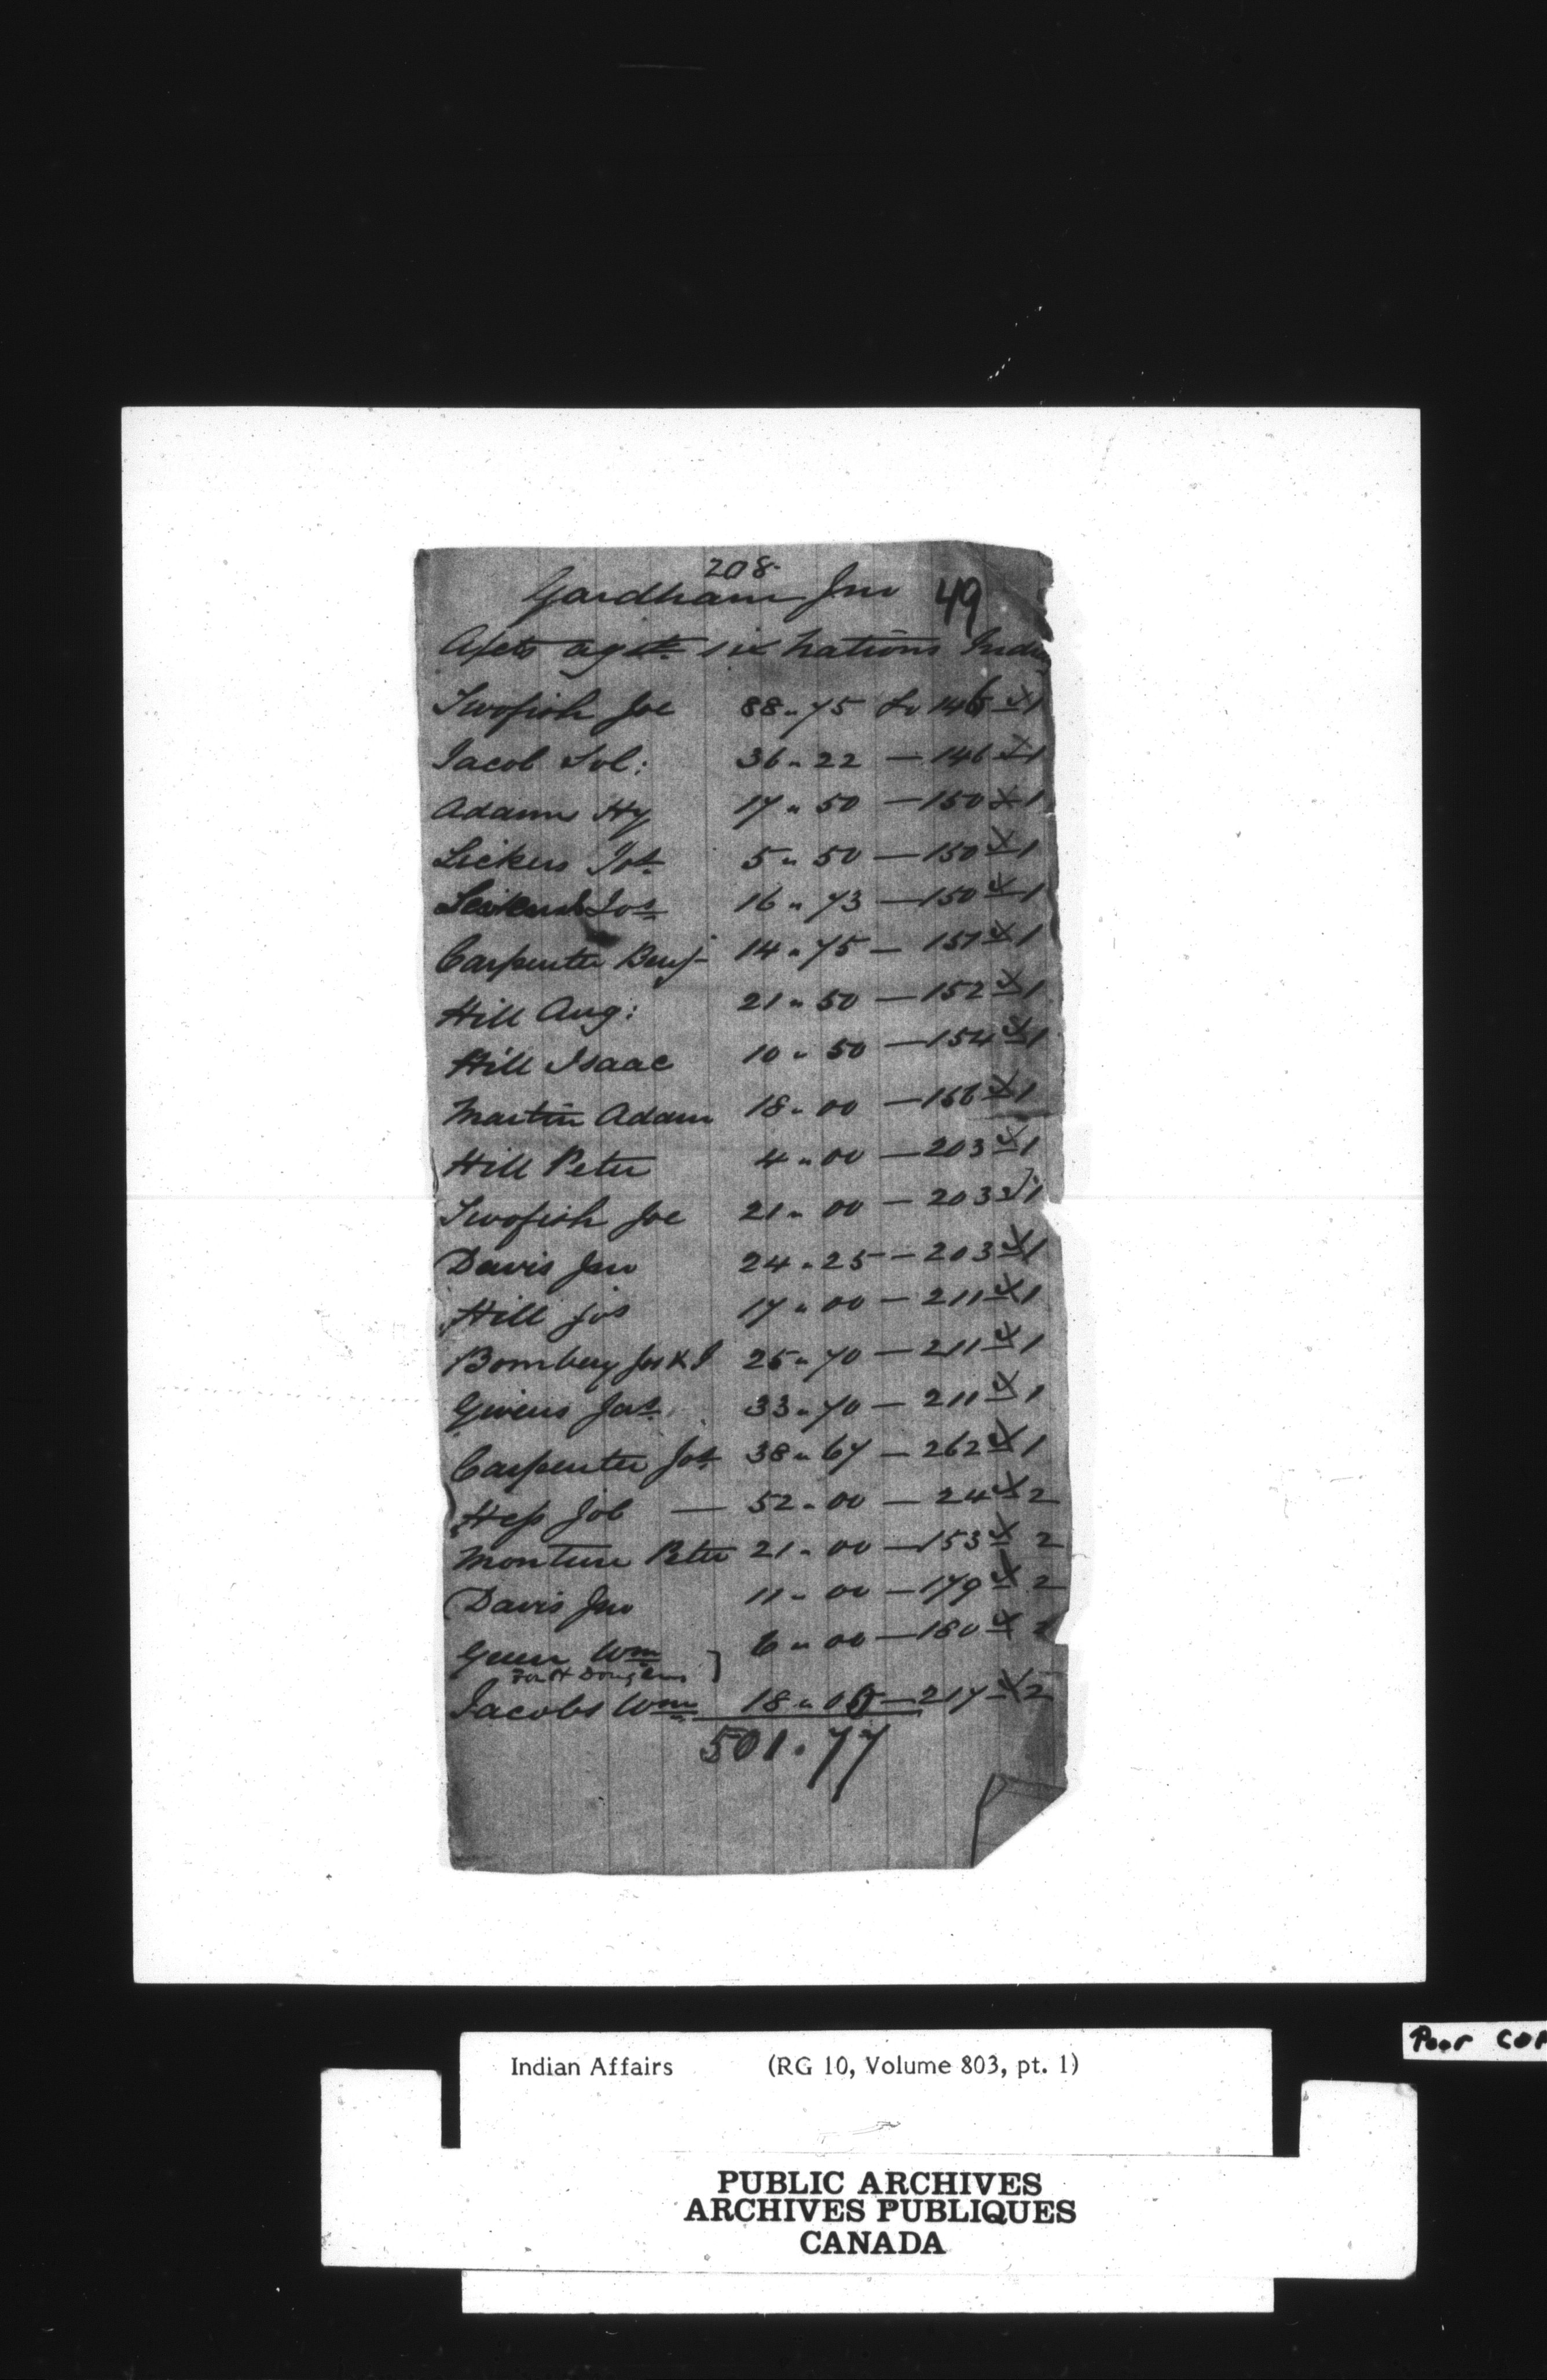 208.
Gardham Jno 49
Accts agst. six nations Indn
Twofish Joe 88.75 Fo 146 X 1
Jacob Sol: 36.22 — 146 X 1
Adams Hy 17.50 — 150 X 1
Lickers Jos. 5.50 — 150 X 1
Jos 16.73 — 150 X 1
Carpenter Benj 14.75 — 151 X 1
Hill Aug: 21.50 — 152 X 1
Hill Isaac 10.50 — 154 X 1
Martin Adam 18.00 — 156 X 1
Hill Peter 4.00 — 203 X 1
Twofish Joe 21.00 — 203 1
Davis Jno 24.25 — 203 X 1
Hill Jos 17.00 — 211 X 1
Bombery Jos & J 25.70 — 211 X 1
Givens Jas. 33.70 — 211 X 1
Carpenter Jos. 38.67 — 262 X 1
Hess Job — 52.00 — 24 X 2
Monture Peter 21.00 — 153 X 2
Davis Jno 11.00 — 179 X 2
Green Wm } 6.00 — 180 X 2
For H Douglas
Jacobs Wm 18.00 — 217 X 2
501.77
Poor COP
Indian Affairs (RG 10, Volume 803, pt. 1)
PUBLIC ARCHIVES
ARCHIVES PUBLIQUES
CANADA